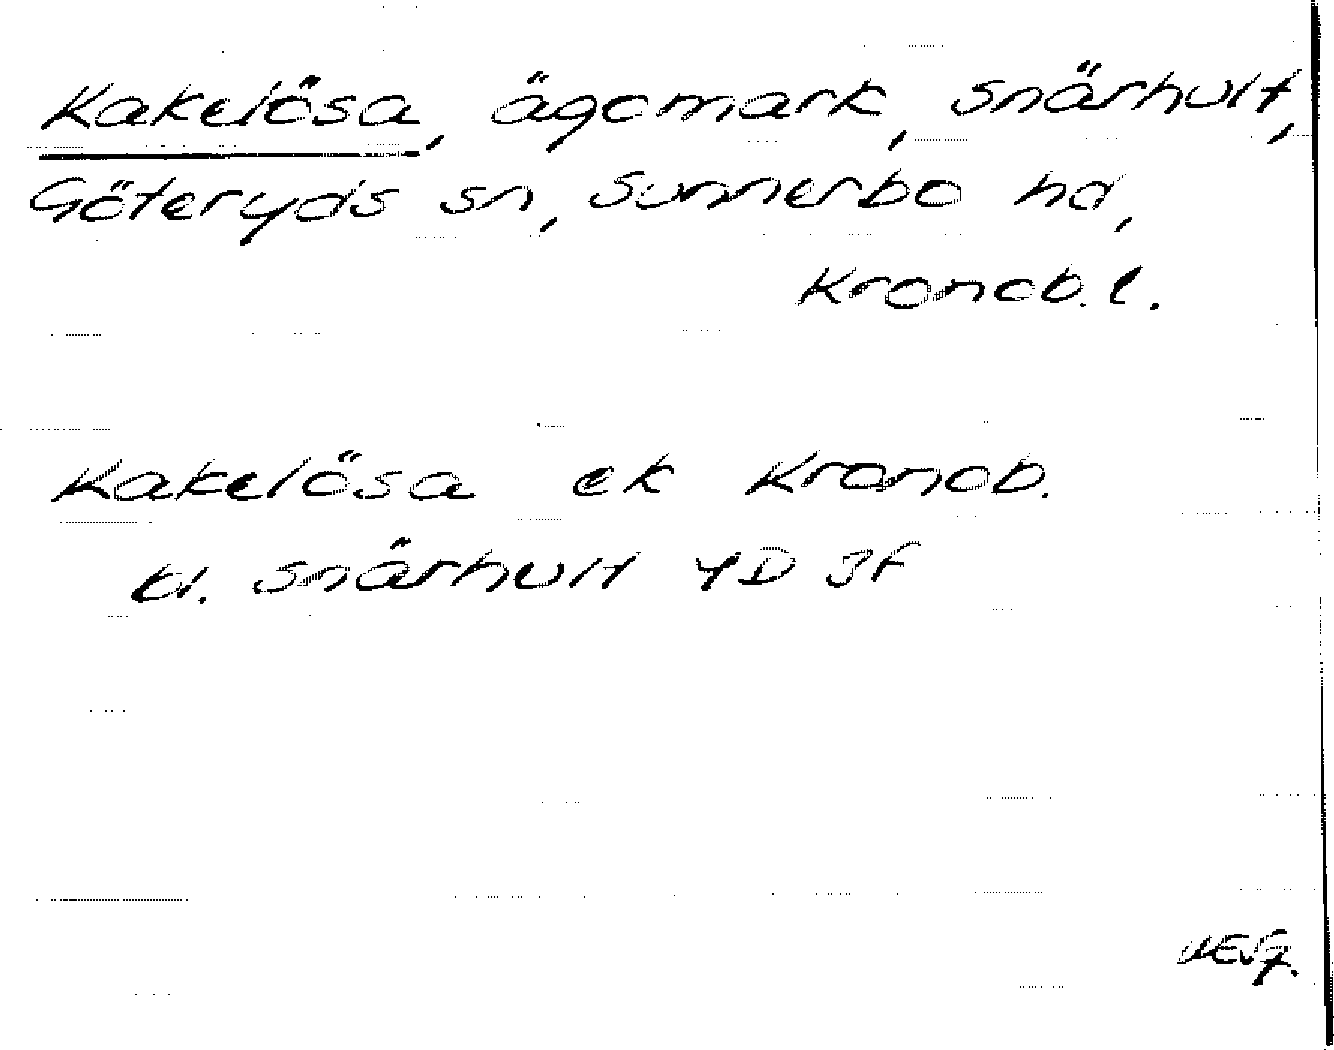 Kakelösa, ägomark, Snärhult,
Göteryds sn, Sunnerbo hd,
Kronob. l.
Kakelösa ek Kronob.
bl. Snärhult 4D 3f